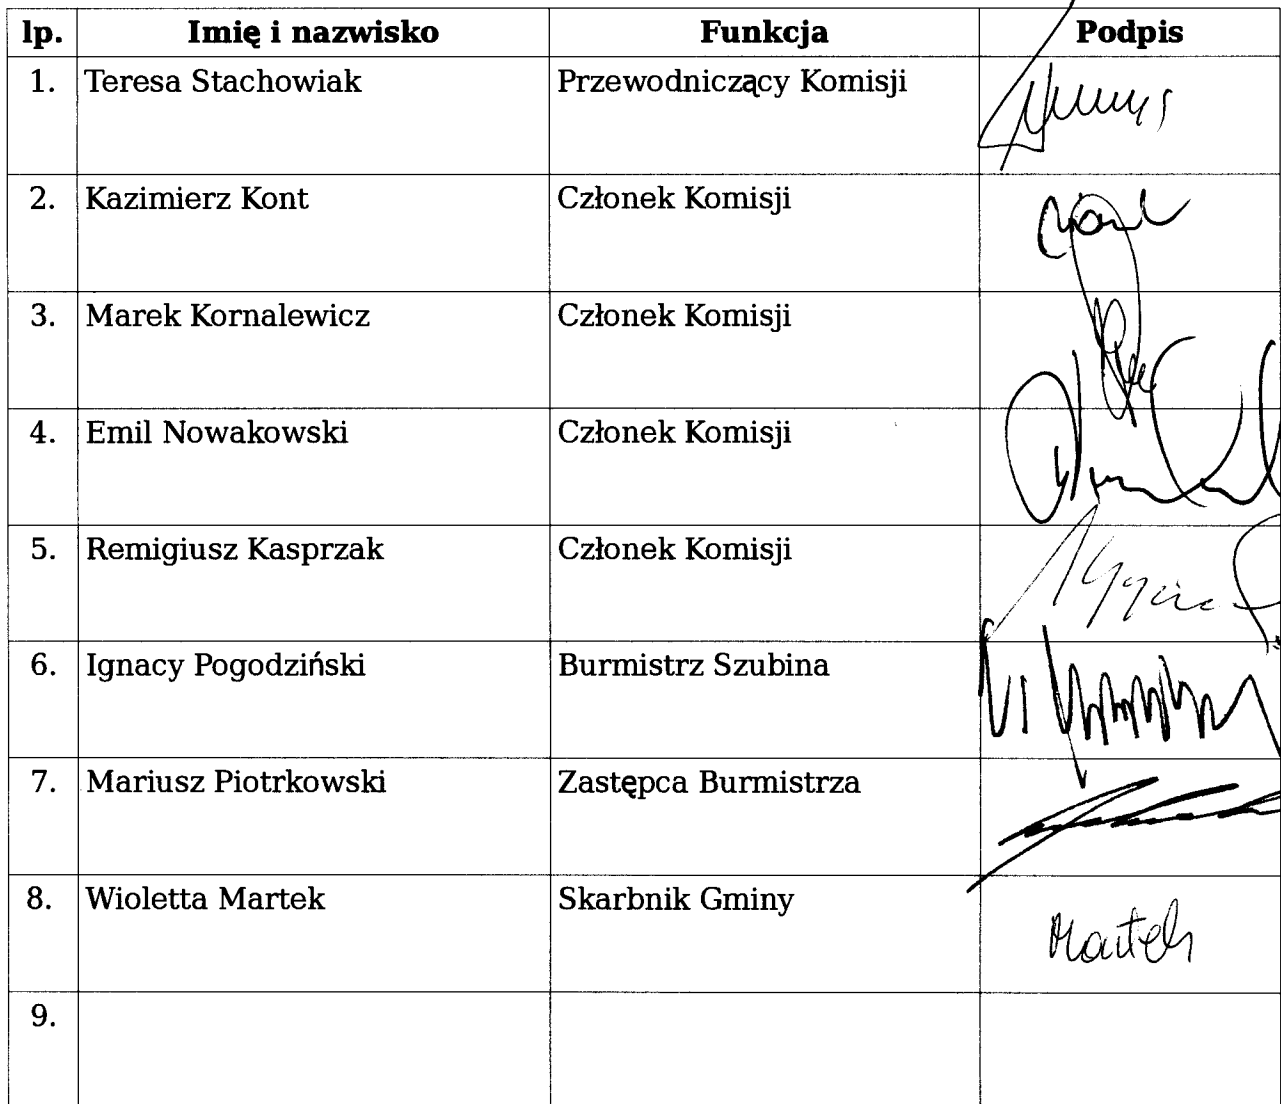 lp. Imię i nazwisko Funkcja Podpis
1. Teresa Stachowiak Przewodniczący Komisji
2. Kazimierz Kont Członek Komisji
3. Marek Kornalewicz Członek Komisji
4. Emil Nowakowski Członek Komisji
5. Remigiusz Kasprzak Członek Komisji
6. Ignacy Pogodziński Burmistrz Szubina
7. Mariusz Piotrkowski Zastępca Burmistrza
8. Wioletta Martek Skarbnik Gminy Martek
9.